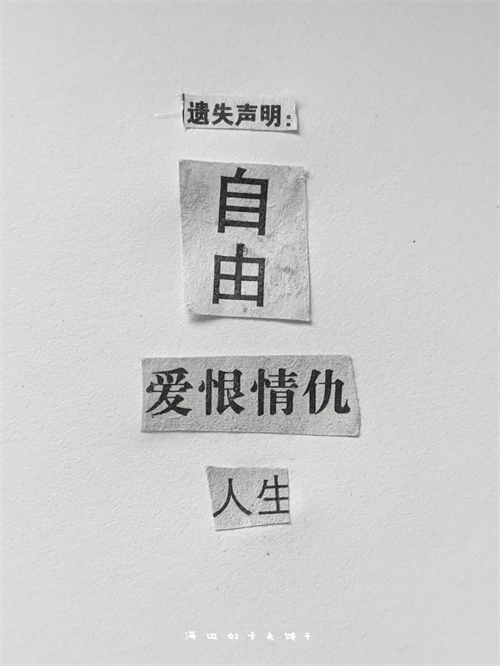 遗失声明：
自
由
爱恨情仇
人生
海边的卡夫饼干